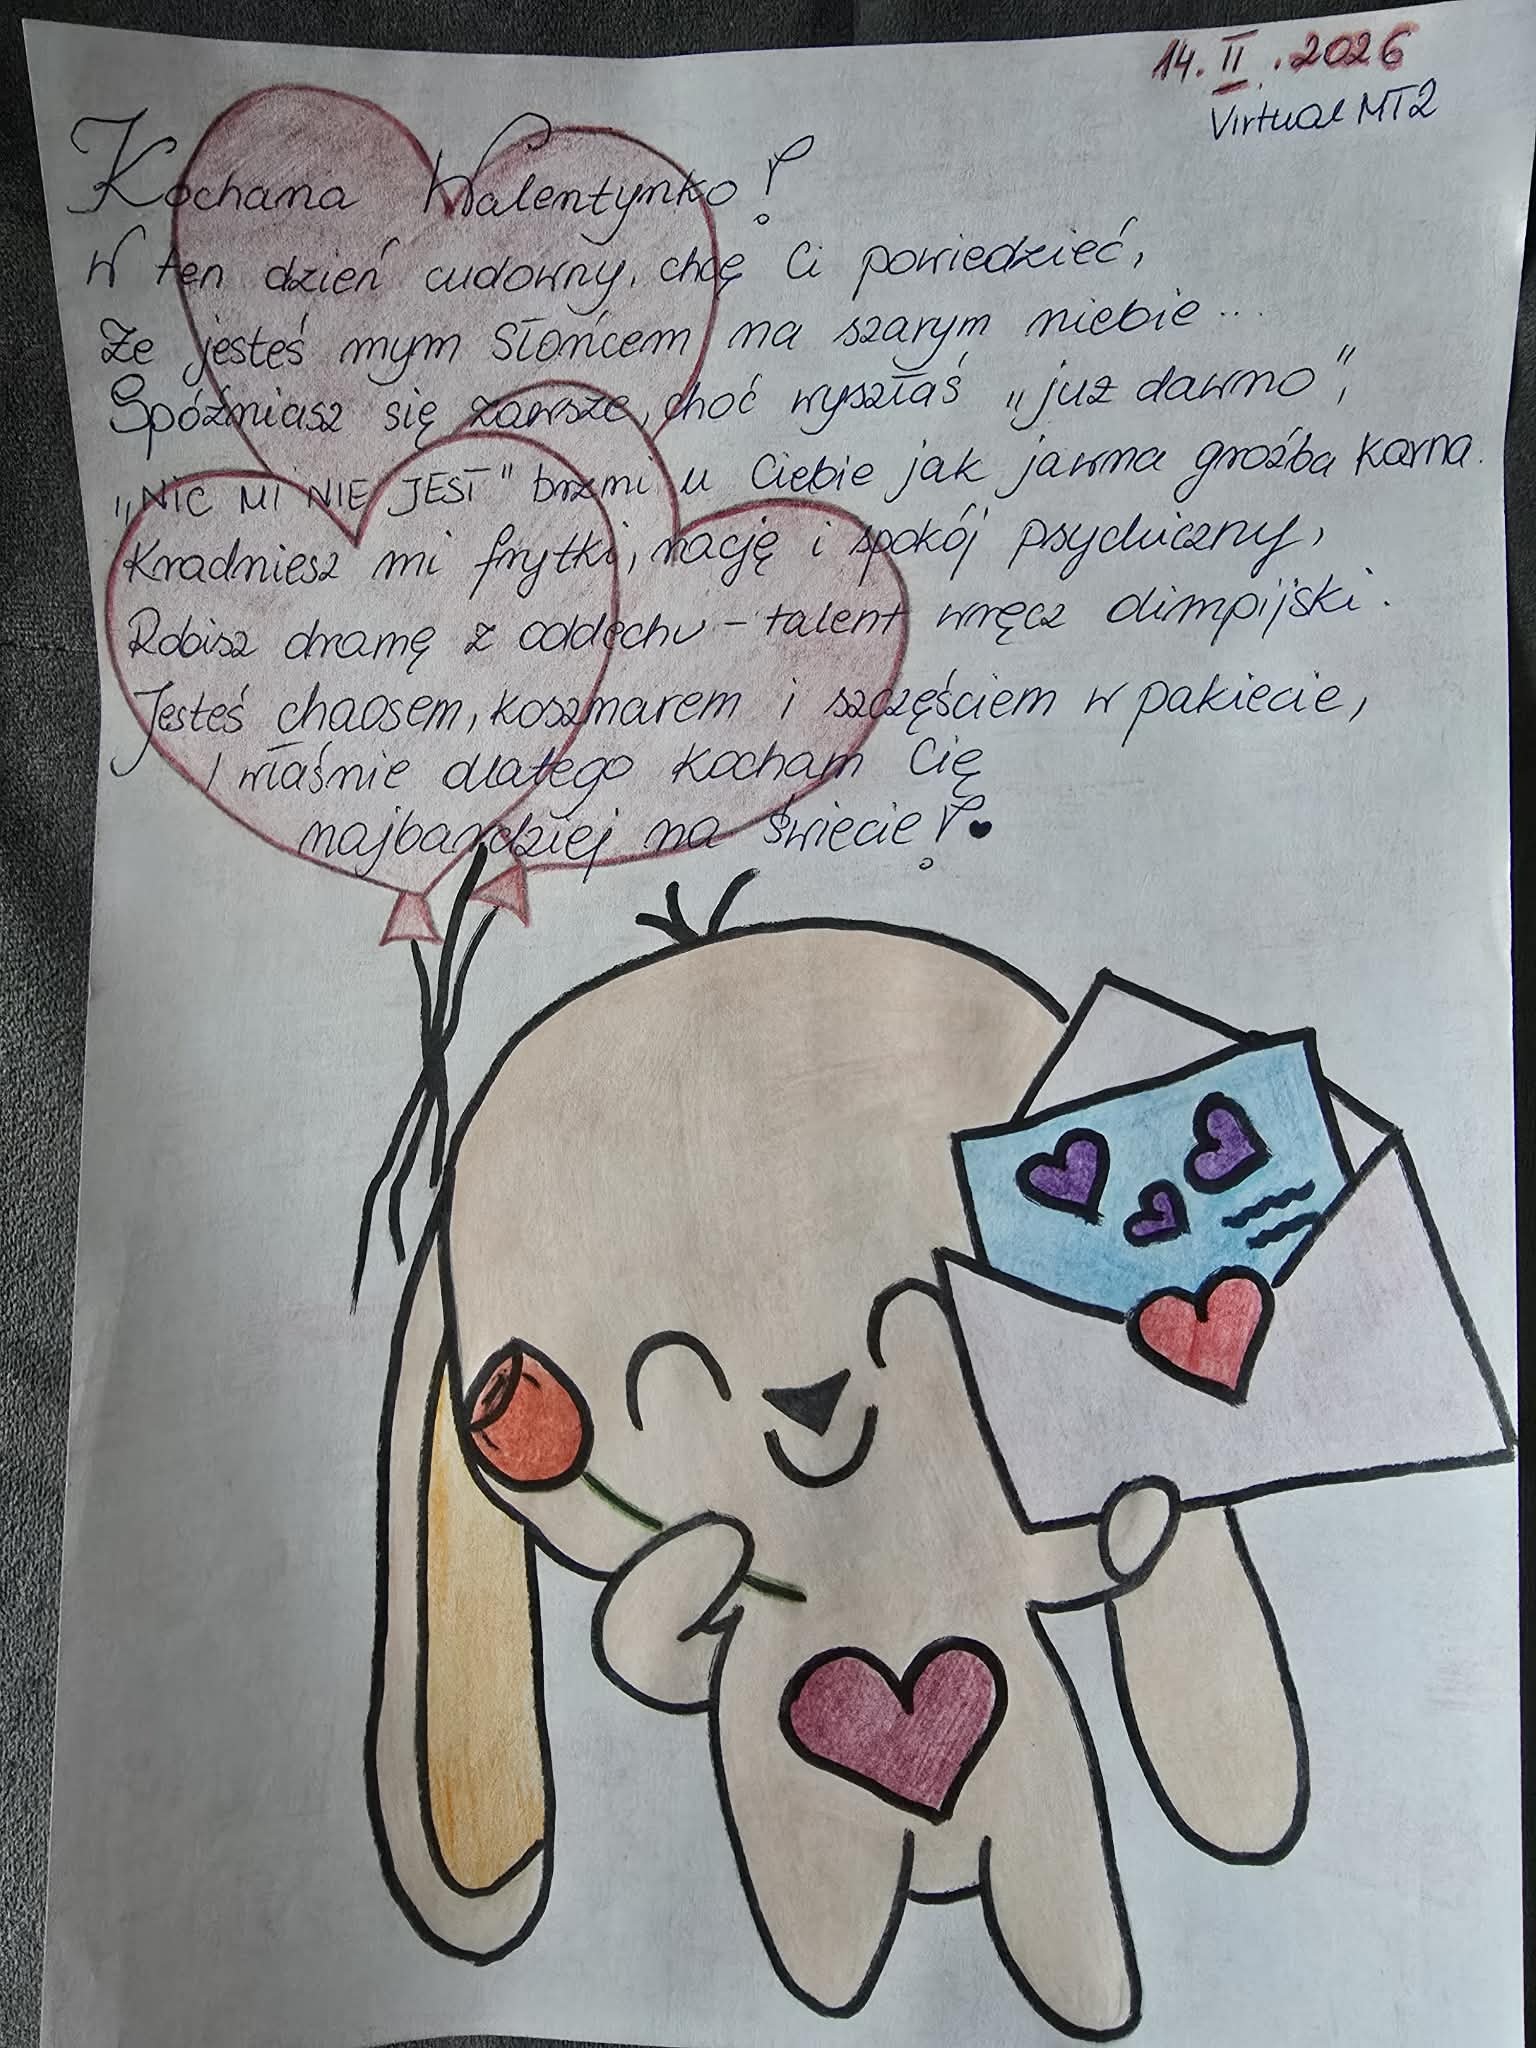 14.II.2026
Virtual MT2
Kochana Walentynko!
W ten dzień cudowny, chcę Ci powiedzieć,
Że jesteś mym Słońcem na szarym niebie...
Spóźniasz się zawsze, choć wyszłaś „już dawno",
„NIC MI NIE JEST" brzmi u Ciebie jak jawna groźba karna.
Kradniesz mi frytki, rację i spokój psychiczny,
Robisz dramę z oddechu - talent wręcz olimpijski.
Jesteś chaosem, koszmarem i szczęściem w pakiecie,
I właśnie dlatego kocham Cię
najbardziej na świecie!